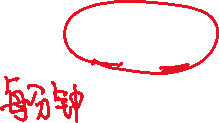 每分钟